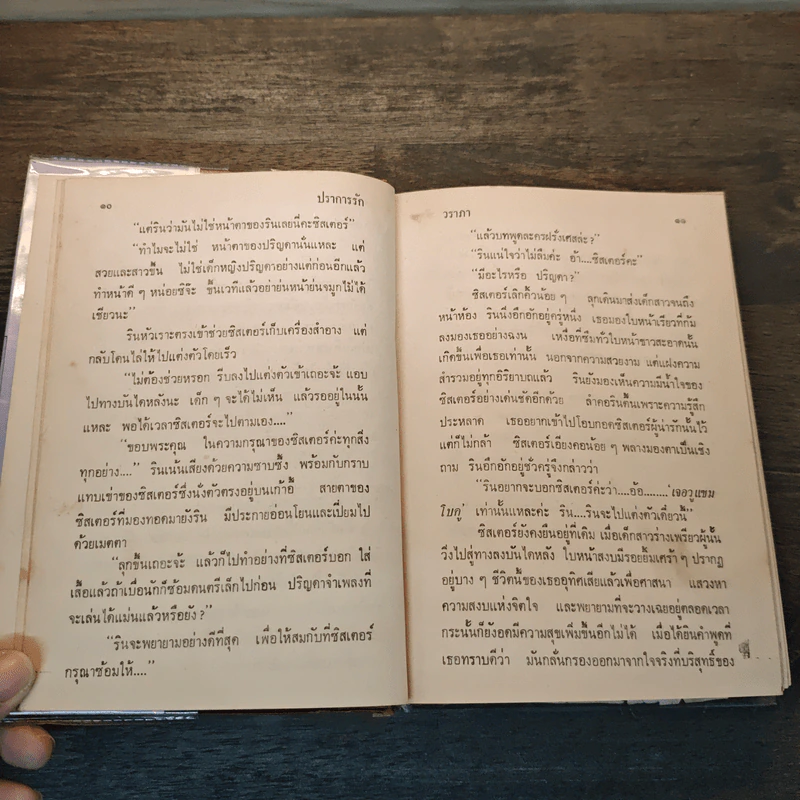 ๑๐ ปราการรัก
“แต่รินว่ามันไม่ใช่หน้าตาของรินเลยนี่คะซิสเตอร์”
“ทำไมจะไม่ใช่ หน้าตาของปริญดานั่นแหละ แต่
สวยและสาวขึ้น ไม่ใช่เด็กหญิงปริญดาอย่างแต่ก่อนอีกแล้ว
ทำหน้าดี ๆ หน่อยซิจ๊ะ ขึ้นเวทีแล้วอย่าย่นหน้าย่นจมูกไม่ได้
เชียวนะ”
รินหัวเราะตรงเข้าช่วยซิสเตอร์เก็บเครื่องสำอาง แต่
กลับโดนไล่ให้ไปแต่งตัวโดยเร็ว
“ไม่ต้องช่วยหรอก รีบลงไปแต่งตัวเข้าเถอะจ้ะ แอบ
ไปทางบันไดหลังนะ เด็ก ๆ จะได้ไม่เห็น แล้วรออยู่ในนั้น
แหละ พอได้เวลาซิสเตอร์จะไปตามเอง....”
“ขอบพระคุณ ในความกรุณาของซิสเตอร์ค่ะทุกสิ่ง
ทุกอย่าง....” รินเน้นเสียงด้วยความซาบซึ้ง พร้อมกับกราบ
แทบเข่าของซิสเตอร์ซึ่งนั่งตัวตรงอยู่บนเก้าอี้ สายตาของ
ซิสเตอร์ที่มองทอดมายังริน มีประกายอ่อนโยนและเปี่ยมไป
ด้วยเมตตา
“ลุกขึ้นเถอะจ้ะ แล้วก็ไปทำอย่างที่ซิสเตอร์บอก ใส่
เสื้อแล้วถ้าเบื่อนักก็ซ้อมดนตรีเล็กไปก่อน ปริญดาจำเพลงที่
จะเล่นได้แม่นแล้วหรือยัง?”
“รินจะพยายามอย่างดีที่สุด เพื่อให้สมกับที่ซิสเตอร์
กรุณาซ้อมให้....”
วราภา ๑๑
“แล้วบทพูดละครฝรั่งเศสล่ะ?”
“รินแน่ใจว่าไม่ลืมค่ะ อ้า....ซิสเตอร์คะ”
“มีอะไรหรือ ปริญดา?”
ซิสเตอร์เลิกคิ้วน้อย ๆ ลุกเดินมาส่งเด็กสาวจนถึง
หน้าห้อง รินนิ่งอึกอักอยู่ครู่หนึ่ง เธอมองใบหน้าเรียวที่ก้ม
ลงมองเธออย่างฉงน เหงื่อที่ซึมทั่วใบหน้าขาวสะอาดนั้น
เกิดขึ้นเพื่อเธอเท่านั้น นอกจากความสวยงาม แต่แฝงความ
สำรวมอยู่ทุกอิริยาบถแล้ว รินยังมองเห็นความมีน้ำใจของ
ซิสเตอร์อย่างเด่นชัดอีกด้วย ลำคอรินตื้นเพราะความรู้สึก
ประหลาด เธออยากเข้าไปโอบกอดซิสเตอร์ผู้น่ารักนั้นไว้
แต่ก็ไม่กล้า ซิสเตอร์เอียงคอน้อย ๆ พลางมองตาเป็นเชิง
ถาม รินอึกอักอยู่ชั่วครู่จึงกล่าวว่า
“รินอยากจะบอกซิสเตอร์ค่ะว่า....อ้อ........‘เจอวูแซม
โบคู่’ เท่านั้นแหละค่ะ ริน....รินจะไปแต่งตัวเดี๋ยวนี้”
ซิสเตอร์ยังคงยืนอยู่ที่เดิม เมื่อเด็กสาวร่างเพรียวผู้นั้น
วิ่งไปสู่ทางลงบันไดหลัง ใบหน้าสงบมีรอยยิ้มเศร้า ๆ ปรากฏ
อยู่บาง ๆ ชีวิตนี้ของเธออุทิศเสียแล้วเพื่อศาสนา แสวงหา
ความสงบแห่งจิตใจ และพยายามที่จะวางเฉยอยู่ตลอดเวลา
กระนั้นก็ยังอดมีความสุขเพิ่มขึ้นอีกไม่ได้ เมื่อได้ยินคำพูดที่
เธอทราบดีว่า มันกลั่นกรองออกมาจากใจจริงที่บริสุทธิ์ของ